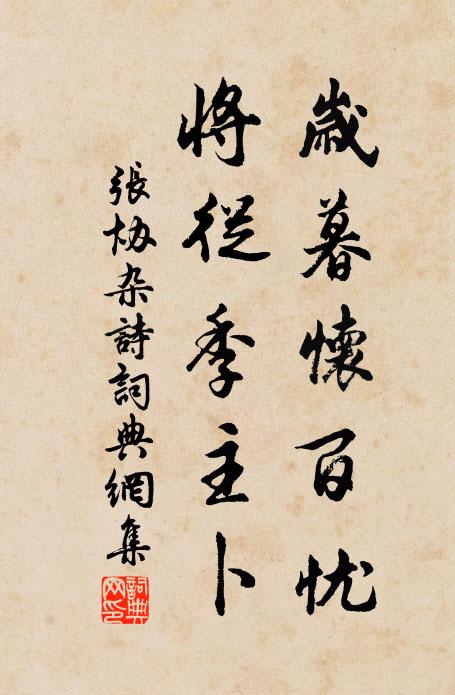 歲暮懷百忧
將從季主卜
張協杂詩詞典網集
詞典網印